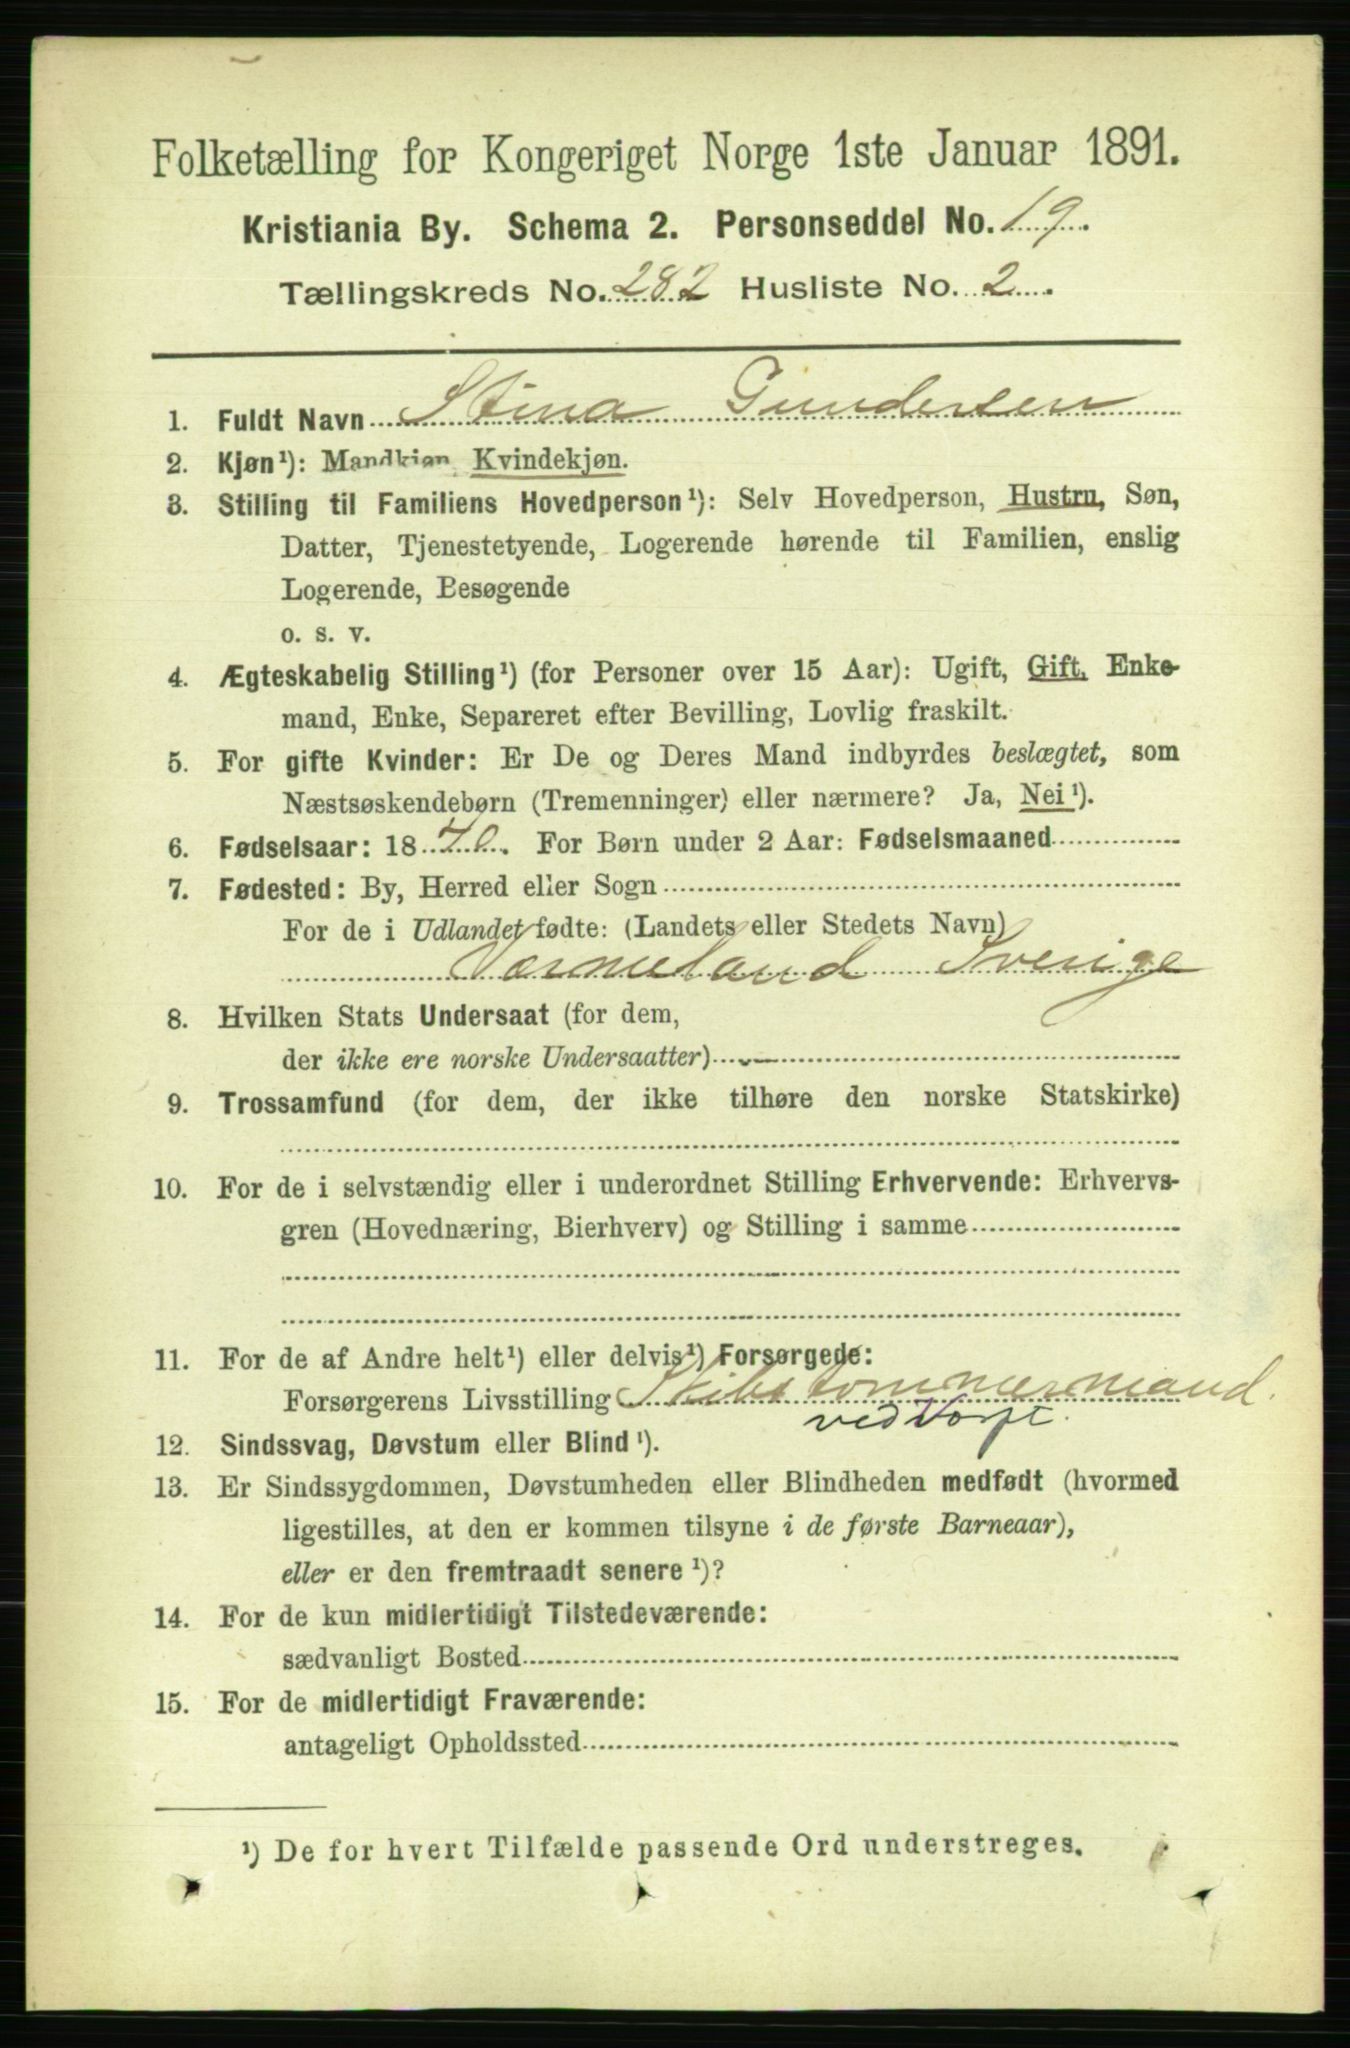 Folketælling for Kongeriget Norge 1ste Januar 1891.
Kristiania By. Schema 2. Personseddel No. 19.
Tællingskreds No. 282 Husliste No. 2.
1. Fuldt Navn Stina Gundersen
2. Kjøn¹): Mandkjøn, Kvindekjøn.
3. Stilling til Familiens Hovedperson¹): Selv Hovedperson, Hustru, Søn,
Datter, Tjenestetyende, Logerende hørende til Familien, enslig
Logerende, Besøgende
o. s. v.
4. Ægteskabelig Stilling¹) (for Personer over 15 Aar): Ugift, Gift, Enke-
mand, Enke, Separeret efter Bevilling, Lovlig fraskilt.
5. For gifte Kvinder: Er De og Deres Mand indbyrdes beslægtet, som
Næstsøskendebørn (Tremenninger) eller nærmere? Ja, Nei¹).
6. Fødselsaar: 1870. For Børn under 2 Aar: Fødselsmaaned
7. Fødested: By, Herred eller Sogn
For de i Udlandet fødte: (Landets eller Stedets Navn)
Värmeland Sverige
8. Hvilken Stats Undersaat (for dem,
der ikke ere norske Undersaatter) —
9. Trossamfund (for dem, der ikke tilhøre den norske Statskirke)
10. For de i selvstændig eller i underordnet Stilling Erhvervende: Erhvervs-
gren (Hovednæring, Bierhverv) og Stilling i samme
11. For de af Andre helt¹) eller delvis¹) Forsørgede:
Forsørgerens Livsstilling Skibstømmermand.
ved
12. Sindssvag, Døvstum eller Blind¹).
13. Er Sindssygdommen, Døvstumheden eller Blindheden medfødt (hvormed
ligestilles, at den er kommen tilsyne i de første Barneaar),
eller er den fremtraadt senere¹)?
14. For de kun midlertidigt Tilstedeværende:
sædvanligt Bosted
15. For de midlertidigt Fraværende:
antageligt Opholdssted
¹) De for hvert Tilfælde passende Ord understreges.